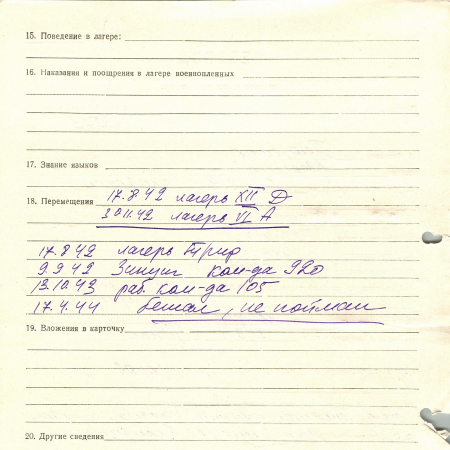 15. Поведение в лагере:
16. Наказания и поощрения в лагере военнопленных
17. Знание языков
18. Перемещения 17.8 42 лагерь XII D
30 11.42 лагерь VI A
17.8 42 лагерь
9 9 42 ком-да 920
13.10.43 раб. ком-да 105
17.4.44 бежал, не пойман
19. Вложения в карточку
20. Другие сведения